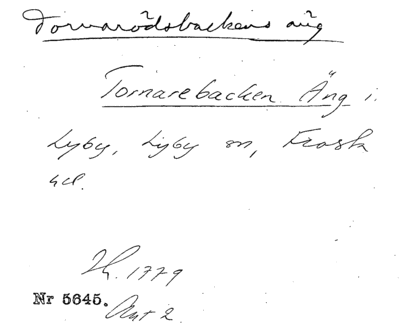 Tornarödsbackens äng
Tornarebacken. Äng i.
Lyby, Lyby sn, Frosta
hd.
Sk. 1779
Nr 5645. Akt 2.